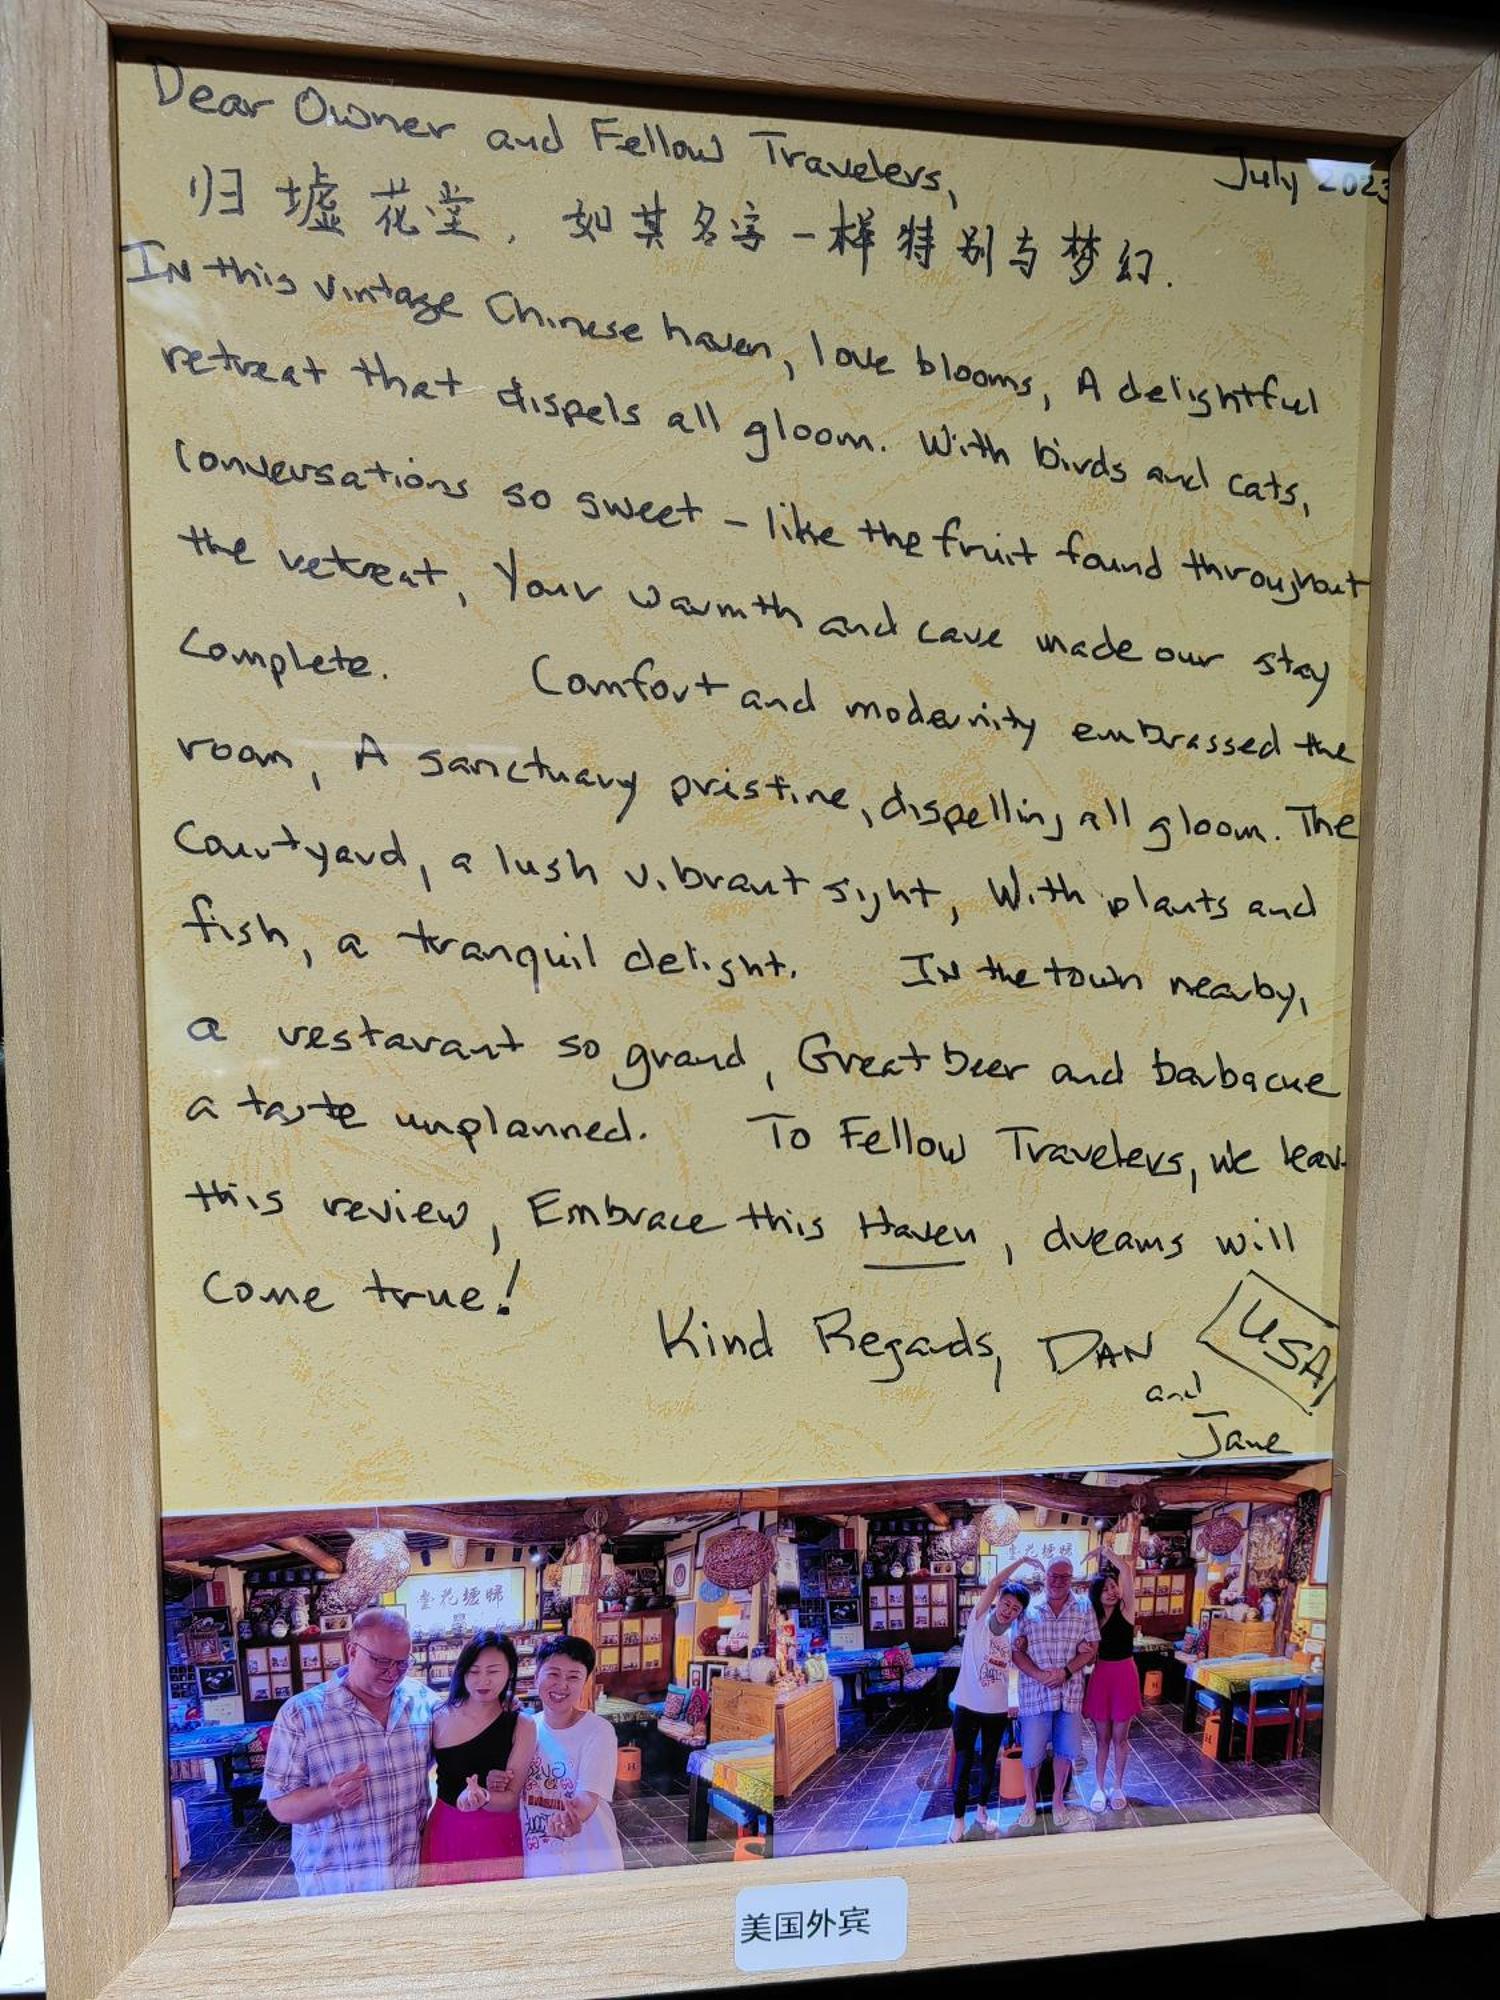 Dear Owner and Fellow Travelers,
July 2023
归墟花堂，如其名字一样特别与梦幻.
IN this vintage Chinese haven, love blooms, A delightful
retreat that dispels all gloom. With birds and cats,
Conversations so sweet – like the fruit found throughout
the retreat, Your warmth and care made our stay
Complete. Comfort and modernity embrassed the
room, A sanctuary pristine, dispelling all gloom. The
Courtyard, a lush vibrant sight, With plants and
fish, a tranquil delight. IN the town nearby,
a restarant so grand, Great beer and barbacue
a taste unplanned. To Fellow Travelers, we leav
this review, Embrace this Haven, dreams will
Come true!
Kind Regards, DAN, USA
and
Jane
堂花墟歸
堂花墟歸
美国外宾